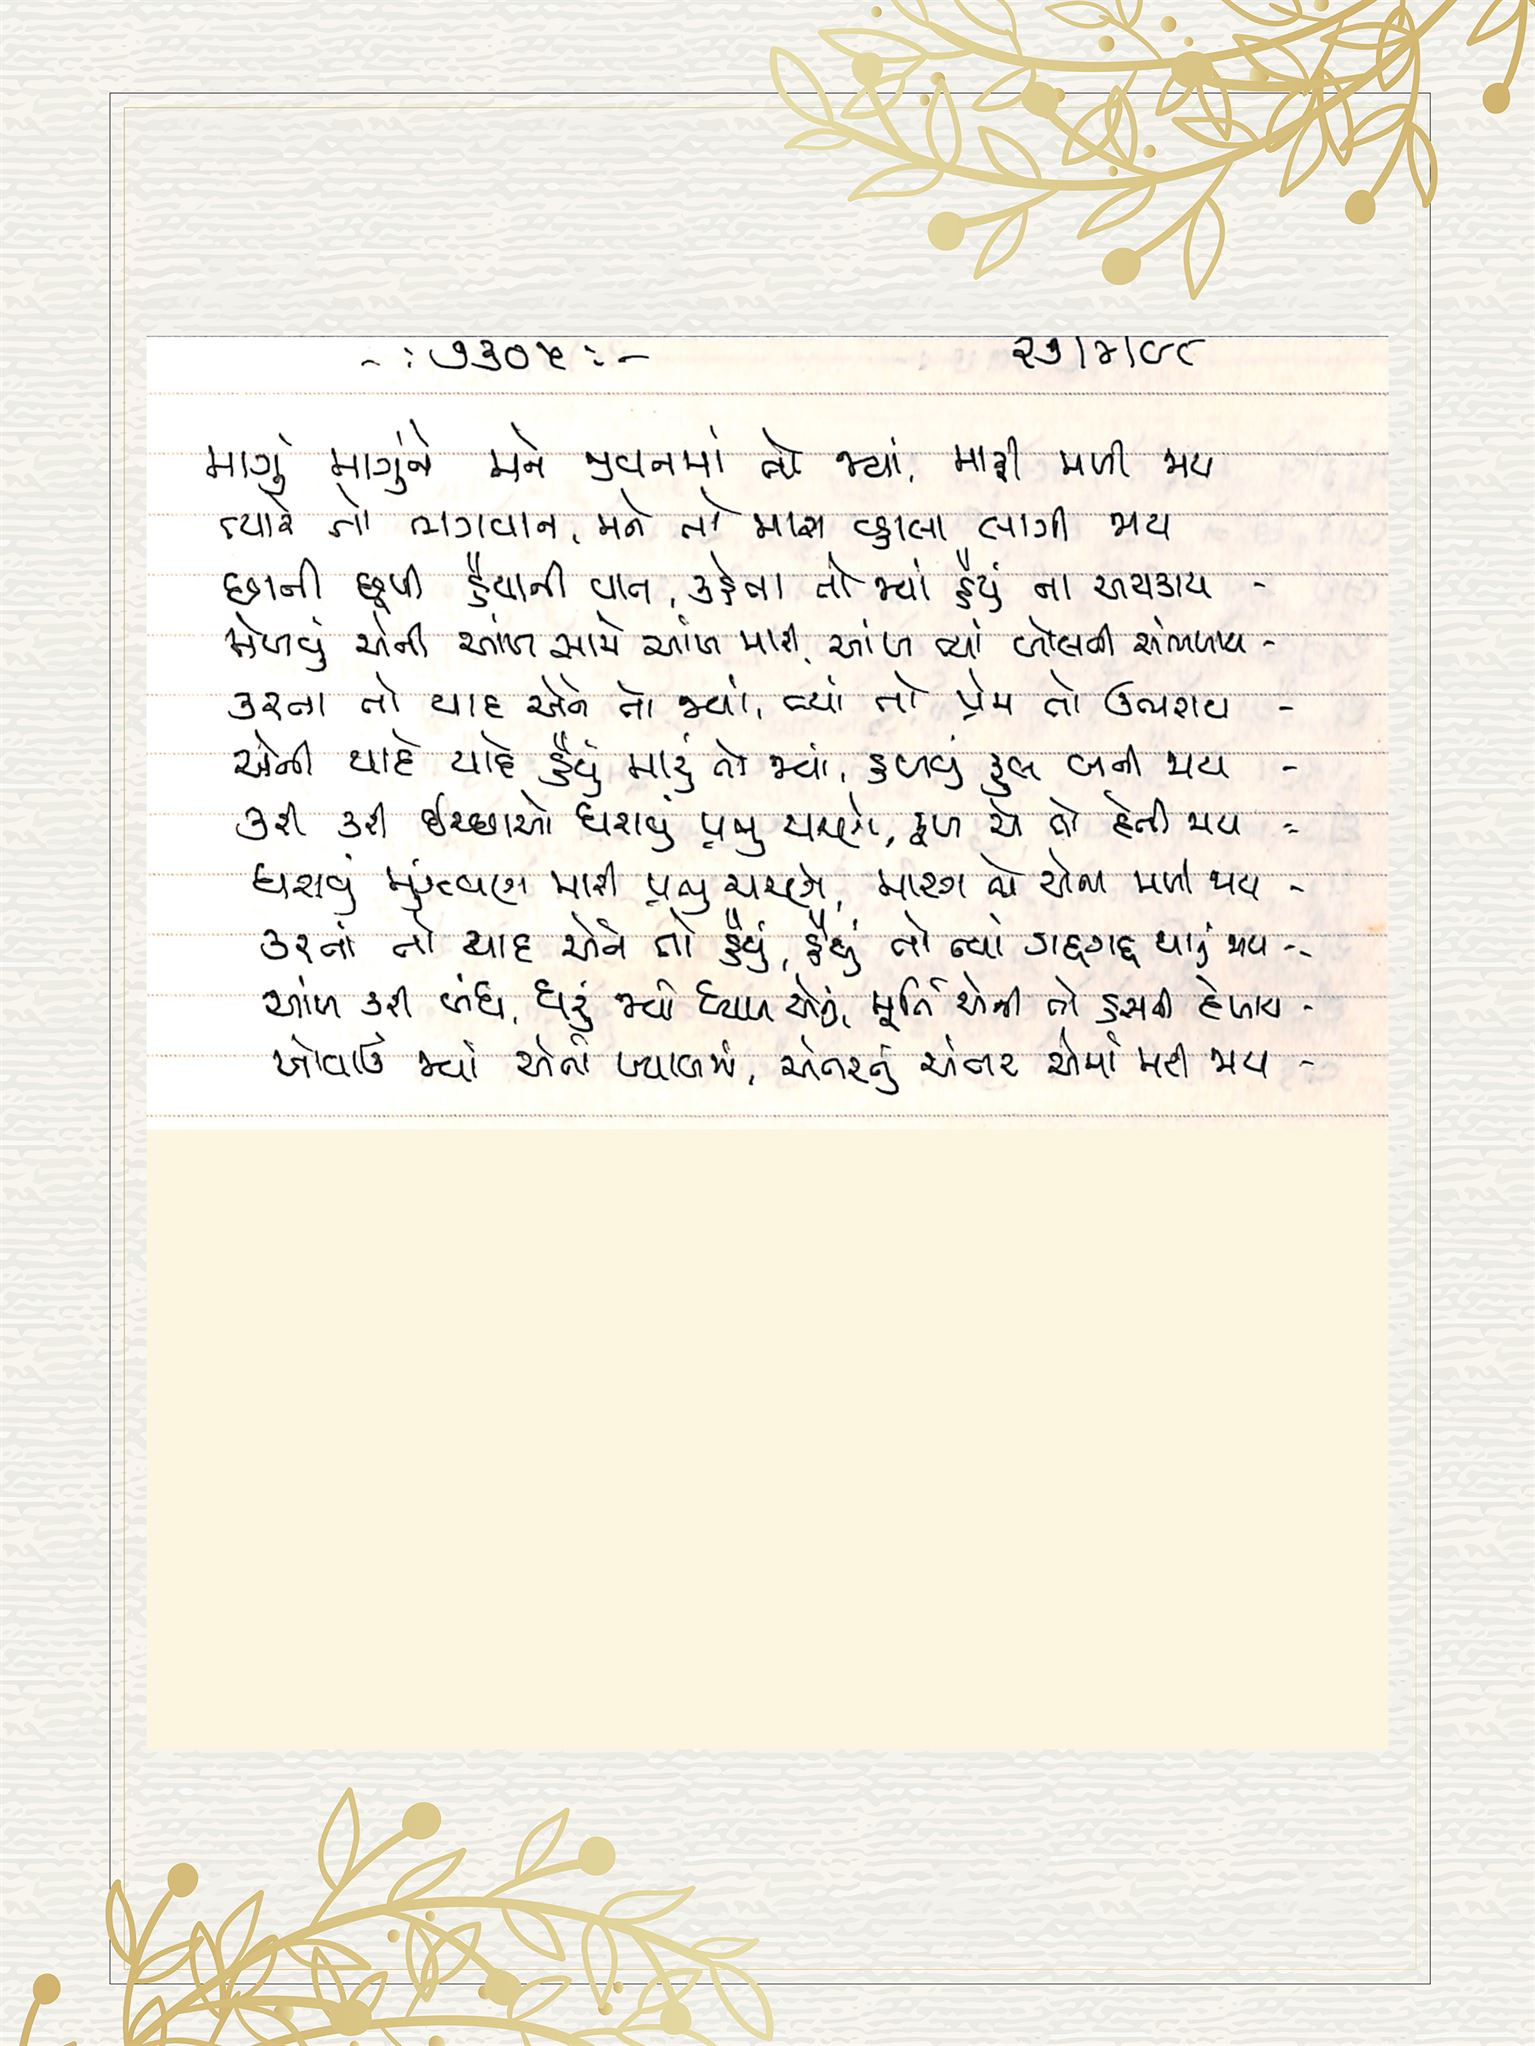 -: ૭૩૦૫ :- ૨૭/૪/૯૮
માગું માગુંને મને જીવનમાં તો જ્યાં, મારી મળી જાય
ત્યારે તો ભગવાન, મને તો મારા વ્હાલા લાગી જાય
છાની છૂપી હૈયાની વાત, કહેતા તો જ્યાં હૈયું ના અચકાય -
મેળવું એની આંખ સામે આંખ મારી, આંખ ત્યાં બોલતી સંભળાય -
કરતા તો યાદ એને તો જ્યાં, ત્યાં તો પ્રેમ તો ઉભરાય -
એની યાદે યાદે હૈયું મારું તો જ્યાં, હળવું ફુલ બની જાય -
કરી કરી ઈચ્છાઓ ધરાવું પ્રભુ ચરણે, ફળ એ તો દેતી જાય -
ધરાવું મુંઝવણ મારી પ્રભુ ચરણે, મારગ તો એના મળી જાય -
કરતાં તો યાદ એને તો હૈયું, હૈયું તો ત્યાં ગદ્દગદ્દ થાતું જાય -
આંખ કરી બંધ, ધરું જ્યાં ધ્યાન એનું, મૂર્તિ એની તો હસતી દેખાય -
ખોવાઉં જ્યાં એના ખ્યાલમાં, અંતરનું અંતર એમાં મટી જાય -